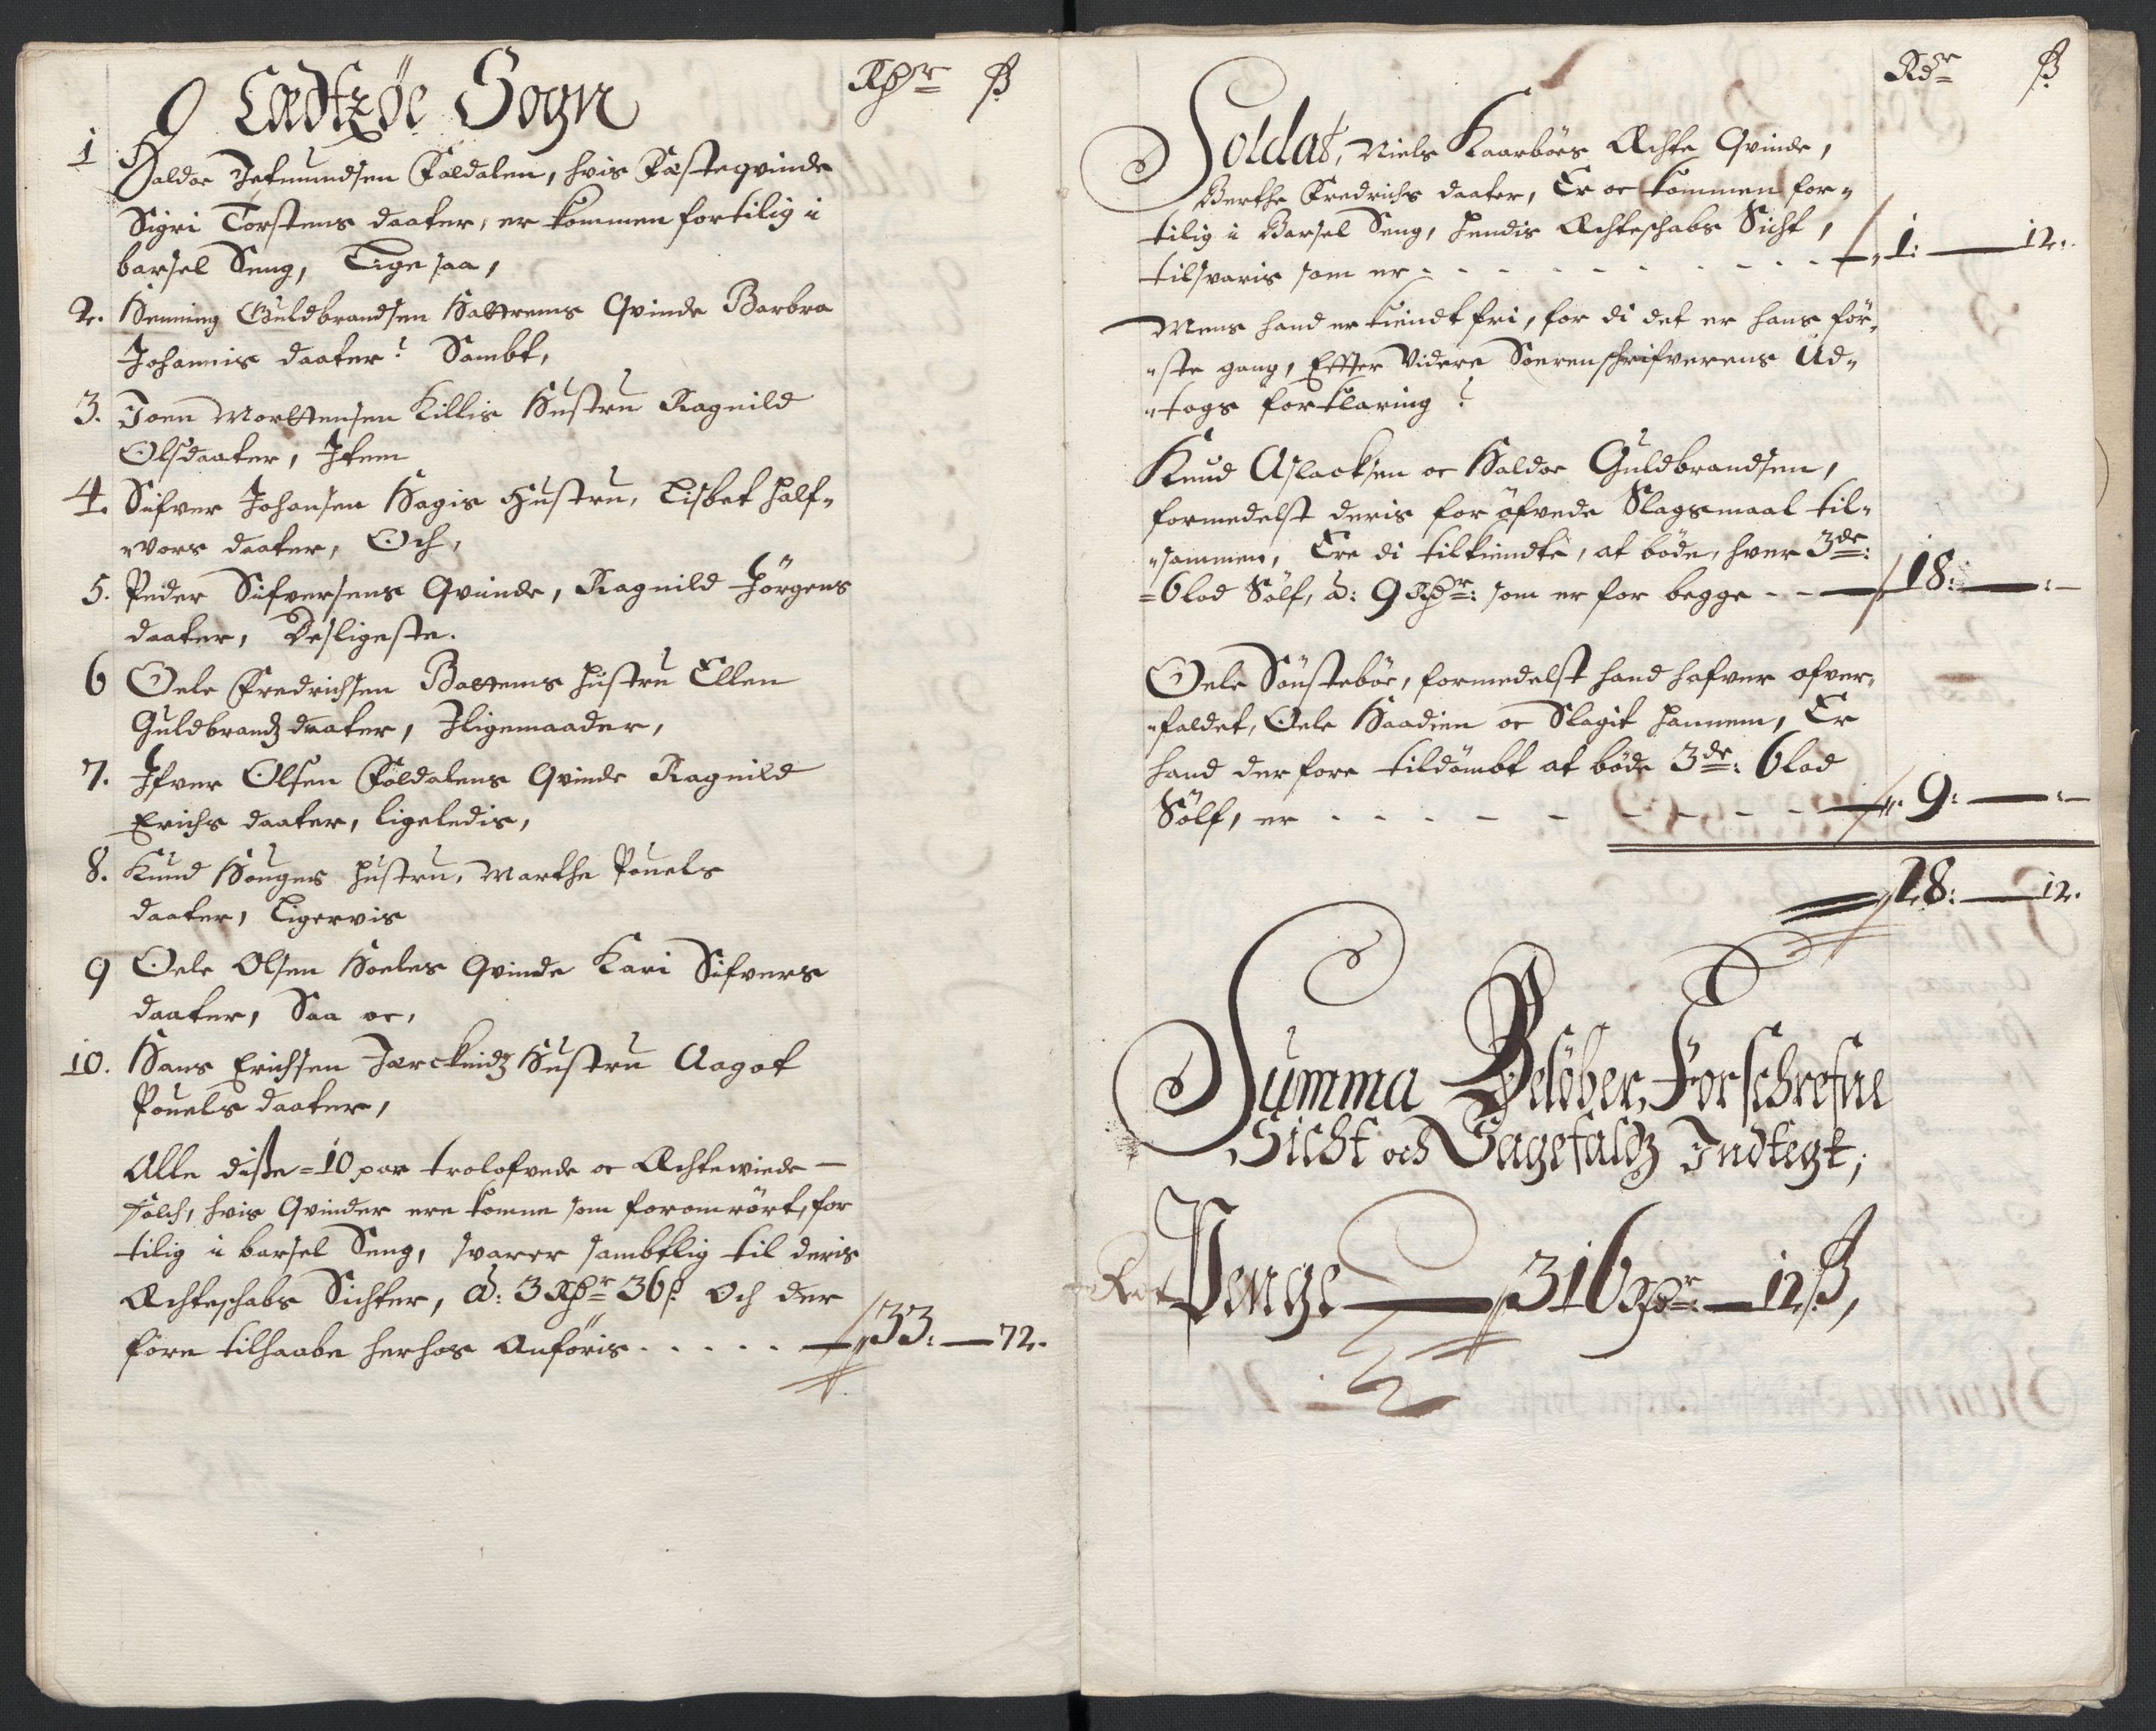 Rdr ß
Ledtzöe Sogn
1 Haldoe Jetmundsen Foldalen, hvis Fæsteqvinde
Sigri Torstens daater, er kommen fortilig i
barsel Seng, Lige saa,
2. Henning Guldbrandsen Hattrems Qvinde Barbra
Johannis daater? Sambt,
3. Joen Morttensen Killis Hustru Ragnild
Olsdaater, Item
4. Sifver Johansen Hagis Hustru, Lisbet Half-
"vors daater, Och,
5. Peder Sifversens Qvinde, Ragnild Jörgens
daater, Desligeste.
6 Oele Fredrichsen Battems hustru Ellen
Guldbrandz daater, Iligemaader,
7. Ifver Olsen Foldalens Qvinde Ragnild
Erichs daater, ligeledis,
8. Knud Hougens hustru, Marthe Pouels
daater, Ligervis
9 Oele Olsen Hoeles Qvinde Kari Sifvers
daater, Saa oc,
10. Hans Erichsen Jerckindz Hustru Aagot
Pouels daater,
Alle disse =10 par trolofvede oc Echteviede
folch, hvis Qvinder ere komne som foromrört, for
tilig i barsel Seng, svarer sambtlig til deris
Echteschabs Sichter, á: 3 Rdr 36 ß Och der
fore tilhaabe herhos Anföris . . . . . 33: — 72.
Rdr ß
Soldat, Niels Kaarböes Echte Qvinde,
Berthe Fredrichs daater, Er oc kommen for-
tilig i Barsel Seng, hendis Echteschabs Sicht,
tilsvaris som er - - - - - - - - - 1: — 12.
Mens hand er kiendt fri, for di det er hans för-
"ste gang, Effter Videre Soerenschrifverens Ud-
"togs forklaring?
Knud Aslacksen oc Haldoe Guldbrandsen,
formedelst deris for öfvede Slagsmaal til-
"sammen, Ere di tilkiendte, at böde, hver 3de:
=6 lod Sölf, á: 9 Rdr: som er for begge - - 18: — : —
Oele Sönsteböe, formedelst hand hafver ofver-
"faldet, Oele Haadien oc Slagit hannem, Er
hand der fore tildömbt at böde 3de: 6 lod
Sölf, er - - - - - - - - - 9: — : —
28: — 12.
Summa Belöber, Forschrefne
Sicht och Sagefaldz Indtegt,
Penge — 316 Rdr: — 12 ß,